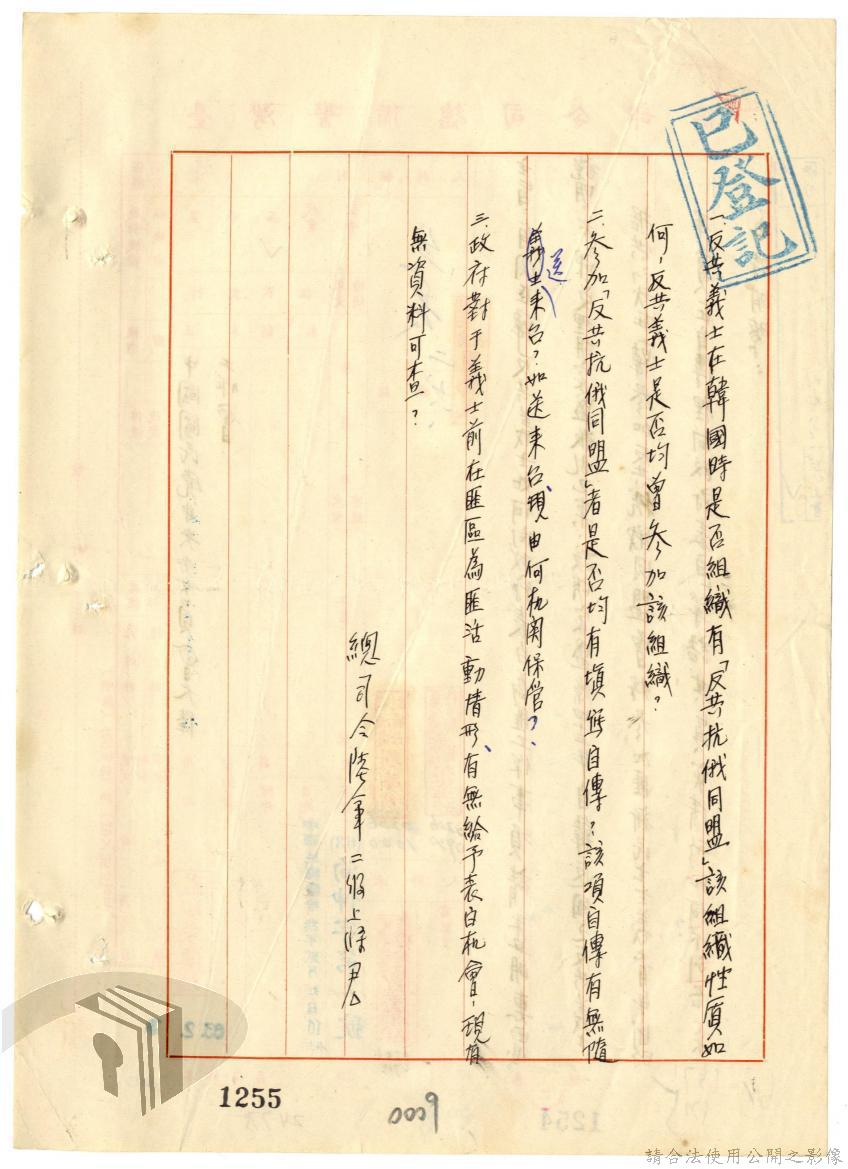 已登記
一、反共義士在韓國時是否組織有「反共抗俄同盟」該組織性質如
何,反共義士是否均曾參加該組織?
二、參加「反共抗俄同盟」者是否均有填寫自傳?該項自傳有無隨
義士送來台?如送來台、現由何机関保管?
三、政府對于義士前在匪區為匪活動情形、有無給予表白机會,現有
無資料可查?
總司令陸軍二級上將
1255
0009
請合法使用公開之影像